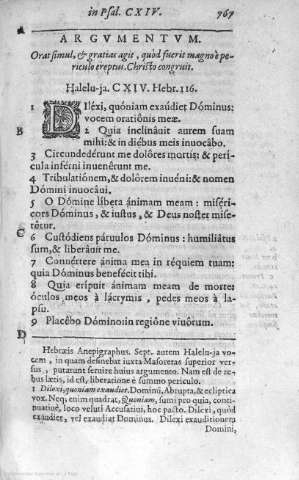 in Psal. CXIV. 767
A
ARGVMENTVM.
Orat simul, & gratias agit, quòd fuerit magno è pe-
riculo ereptus. Christo congruit.
Halelu-ja. CXIV. Hebr. 116.
1 DIléxi, quóniam exaudiet Dóminus:
vocem oratiónis meæ.
B
2 Quia inclinâuit aurem suam
mihi: & in diébus meis inuocâbo.
3 Circundedérunt me dolôres mortis: & peri-
cula inférni inuenêrunt me.
4 Tribulatiônem, & dolôrem inuéni: & nomen
Dómini inuocâui.
5 O Dómine líbera ánimam meam: miséri-
cors Dóminus, & iustus, & Deus noster mise-
rêtur.
C
6 Custódiens páruulos Dóminus: humiliâtus
sum, & liberâuit me.
7 Conuértere ánima mea in réquiem tuam:
quia Dóminus benefécit tibi.
8 Quia erípuit ánimam meam de morte:
óculos meos à lácrymis, pedes meos à la-
psu.
9 Placêbo Dómino in regiône viuôrum.
D
Hebræis Anepigraphus. Sept. autem Halelu-ja vo-
cem, in quam desinebat iuxta Masoretas superior ver-
sus, putarunt seruire huius argumento. Nam est de re-
bus lætis, id est, liberatione è summo periculo.
1 Dilexi, quoniam exaudiet. Dominus, Abrupta, & ecliptica
vox. Neq. enim quadrat, Quoniam, sumi pro quia, conti-
nuatiuè, loco veluti Accusatiui, hoc pacto. Dilexi, quòd
exaudiet, vel exaudiat Dominus. Dilexi exauditionem
Domini,